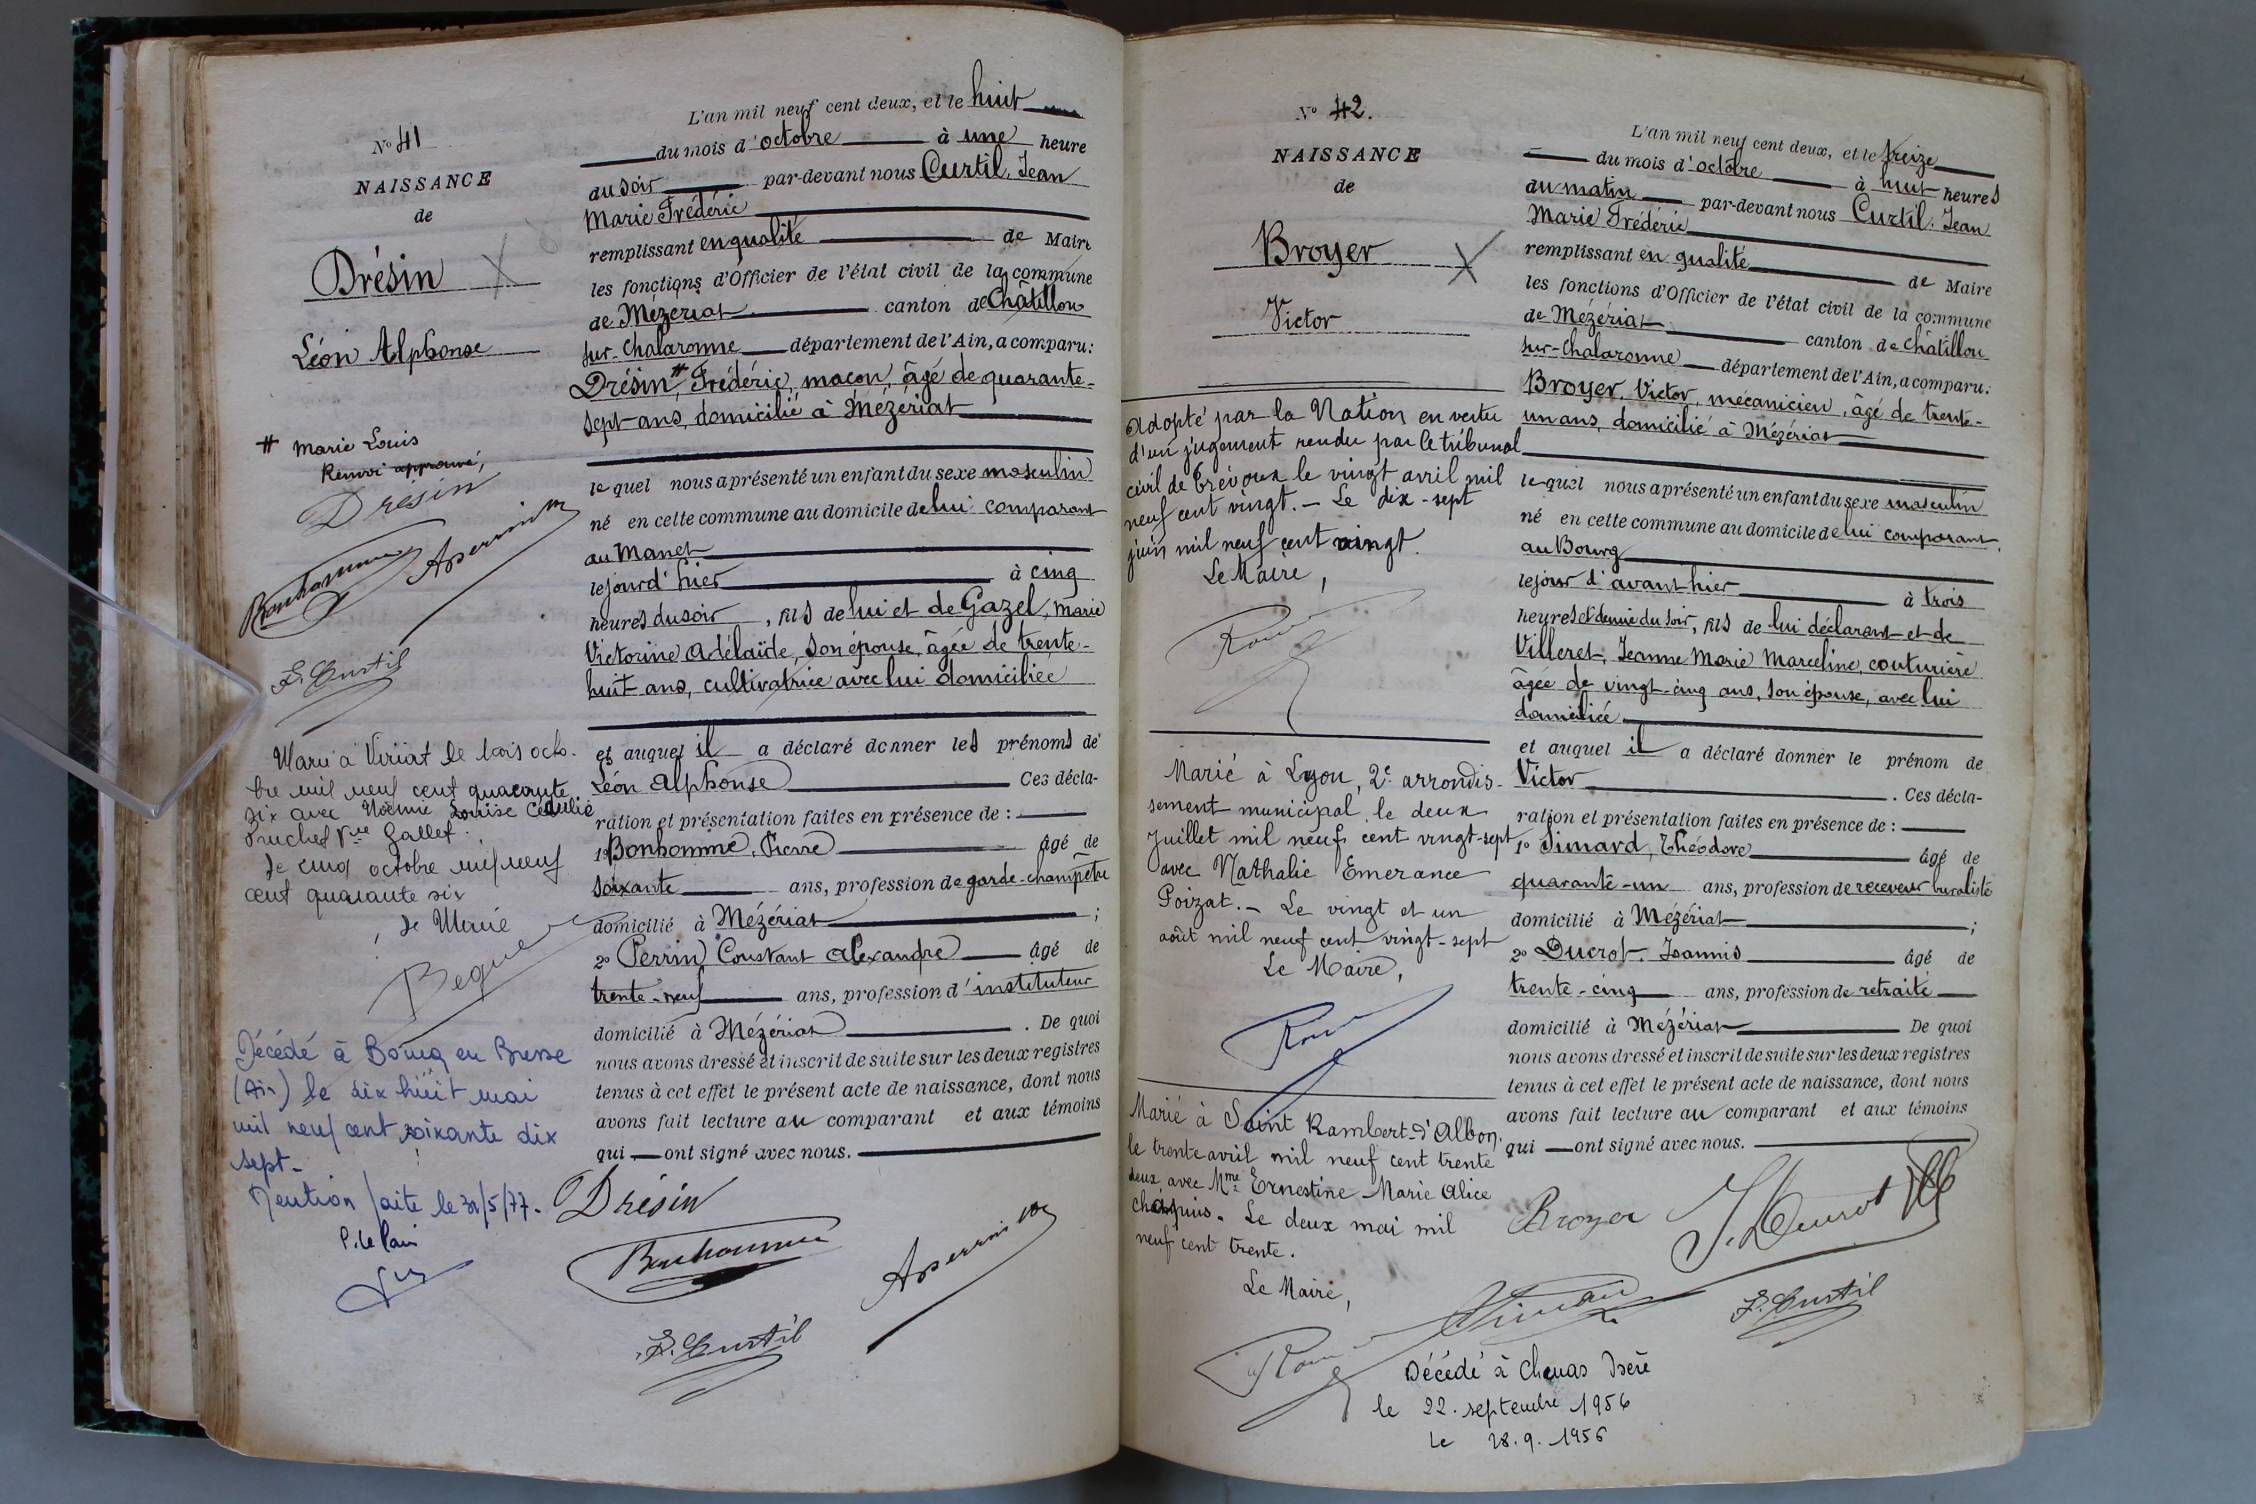 N° 41
NAISSANCE
de
Drésin
Léon Alphonse
# Marie Louis
Renvoi approuvé,
Drésin
Bonhomme
Aperrin
F. Curtil
Marié à Viriat le trois octo-
bre mil neuf cent quarante
six avec Noëmie Louise Céculie
Pruchet Vve Gallet.
Le cinq octobre mil neuf
cent quarante six
Le Maire
Décédé à Bourg en Bresse
(Ain) le dix huit mai
mil neuf cent soixante dix
sept.
Mention faite le 31/5/77.
L'an mil neuf cent deux, et le huit
du mois d'octobre à une heure
du soir par-devant nous Curtil, Jean
Marie Frédéric
remplissant en qualité de Maire
les fonctions d'Officier de l'état civil de la commune
de Mézériat canton de Châtillon
sur-Chalaronne département de l'Ain, a comparu:
Drésin # Frédéric, maçon, âgé de quarante-
sept ans, domicilié à Mézériat
lequel nous a présenté un enfant du sexe masculin
né en cette commune au domicile de lui comparant
au Manet
le jour d'hier à cinq
heures du soir, fils de lui et de Gazel, Marie
Victorine Adélaïde, son épouse, âgée de trente-
huit ans, cultivatrice avec lui domiciliée
et auquel il a déclaré donner les prénoms de
Léon Alphonse Ces décla-
ration et présentation faites en présence de :
1° Bonhomme, Pierre âgé de
soixante ans, profession de garde-champêtre
domicilié à Mézériat ;
2° Perrin Constant Alexandre âgé de
trente-neuf ans, profession d'instituteur
domicilié à Mézériat . De quoi
nous avons dressé et inscrit de suite sur les deux registres
tenus à cet effet le présent acte de naissance, dont nous
avons fait lecture au comparant et aux témoins
qui ont signé avec nous.
Drésin
Bonhomme
Aperrin
F. Curtil
N° 42.
NAISSANCE
de
Broyer
Victor
Adopté par la Nation en vertu
d'un jugement rendu par le tribunal
civil de Trévoux le vingt avril mil
neuf cent vingt. — Le dix-sept
juin mil neuf cent vingt.
Le Maire,
Marié à Lyon, 2e arrondis-
sement municipal, le deux
Juillet mil neuf cent vingt-sept
avec Nathalie Emerance
Poizat. — Le vingt et un
août mil neuf cent vingt-sept
Le Maire,
Marié à Saint Rambert-d'Albon,
le trente avril mil neuf cent trente
deux avec Mme Ernestine-Marie Alice
Le deux mai mil
neuf cent trente.
Le Maire,
L'an mil neuf cent deux, et le treize
du mois d'octobre à huit heures
du matin par-devant nous Curtil, Jean
Marie Frédéric
remplissant en qualité de Maire
les fonctions d'Officier de l'état civil de la commune
de Mézériat canton de Châtillon
sur-Chalaronne département de l'Ain, a comparu:
Broyer, Victor, mécanicien, âgé de trente-
un ans, domicilié à Mézériat
lequel nous a présenté un enfant du sexe masculin
né en cette commune au domicile de lui comparant,
au Bourg
le jour d'avant hier à trois
heures et demie du soir, fils de lui déclarant et de
Villeret, Jeanne Marie Marceline, couturière
âgée de vingt-cinq ans, son épouse, avec lui
domiciliée
et auquel il a déclaré donner le prénom de
Victor . Ces décla-
ration et présentation faites en présence de :
1° Simard, Théodore âgé de
quarante-un ans, profession de receveur buraliste
domicilié à Mézériat ;
2° Ducrot, Joannis âgé de
trente-cinq ans, profession de retraité
domicilié à Mézériat De quoi
nous avons dressé et inscrit de suite sur les deux registres
tenus à cet effet le présent acte de naissance, dont nous
avons fait lecture au comparant et aux témoins
qui ont signé avec nous.
Broyer
J. Ducrot
Simard
F. Curtil
Décédé à Chenas Isère
le 22 septembre 1956
le 28.9.1956